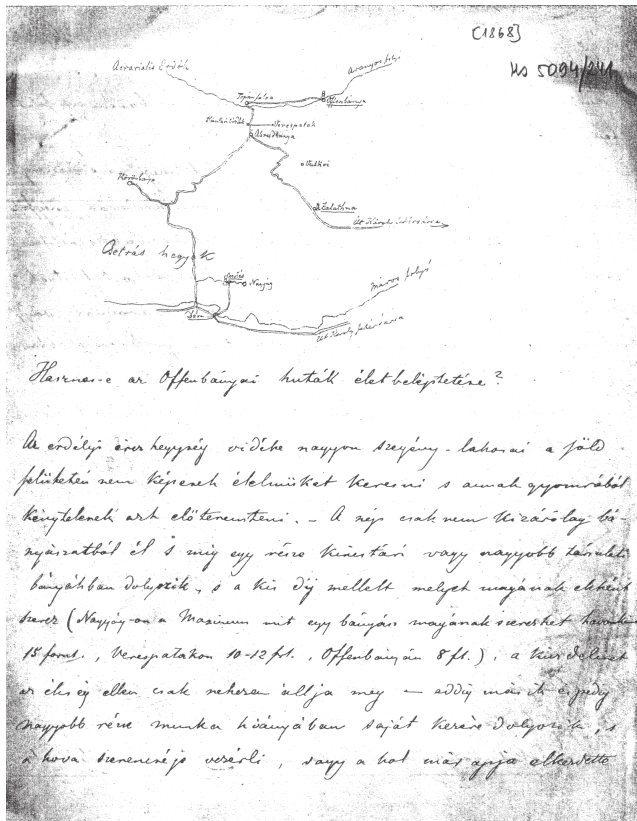 [1868]
Hs 5094/241
Aerarialis Erdők
Aranyos folyó
Topánfalva
Offenbánya
Verespatak
Abrudbánya
Vulkoi
Kőrösbánya
Zalathna
út Károly fehérvárra
Csetrás hegyek
Nagyág
Maros folyó
Déva
út Károly fehérvárra
Hasznos-e az Offenbányai huták életbeléptetése?
Az erdélyi érczhegység vidéke nagyon szegény - lakosai a föld
felületén nem képesek élelmüket keresni s annak gyomrából
kénytelenek azt előteremteni. - A nép csak nem kizárólag bá-
nyászatból él s mig egy része kincstári vagy nagyobb társulati
bányákban dolgozik, s a kis díj mellett melyet magának ekként
szerez (Nagyág-on a Maximum mit egy bányász magának szerezhet havonkint
15 forint., Verespatakon 10-12 ft., Offenbányán 8 ft.), a küzdelmet
az éhség ellen csak nehezen állja meg — addig más és pedig
nagyobb része munka hiányában saját kezére dolgozik, s
a hova szerencséje vezérli, vagy a hol már apja elkezdette